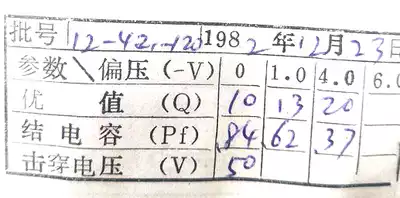 批号 12-42,-120 1982年12月23日
参数\偏压(-V) 0 1.0 4.0 6.0
优值(Q) 10 13 20
结电容(Pf) 84 62 37
击穿电压(V) 50